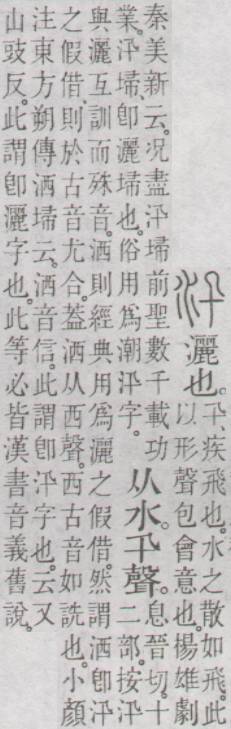 汛灑也。
卂、疾飛也。水之散如飛。此
以形聲包會意也。楊雄劇
秦美新云。況盡汛埽前聖數千載功
業。汛埽、卽灑埽也。俗用爲潮汛字。
从水。卂聲。
息晉切。十
二部。按汛
與灑互訓而殊音。洒則經典用爲灑之假借。然謂洒卽汛
之假借、則於古音尤合。葢洒从西聲。西古音如詵也。小顏
注東方朔傳洒埽云。洒音信。此謂卽汛字也。云又
山豉反。此謂卽灑字也。此等必皆漢書音義舊說。